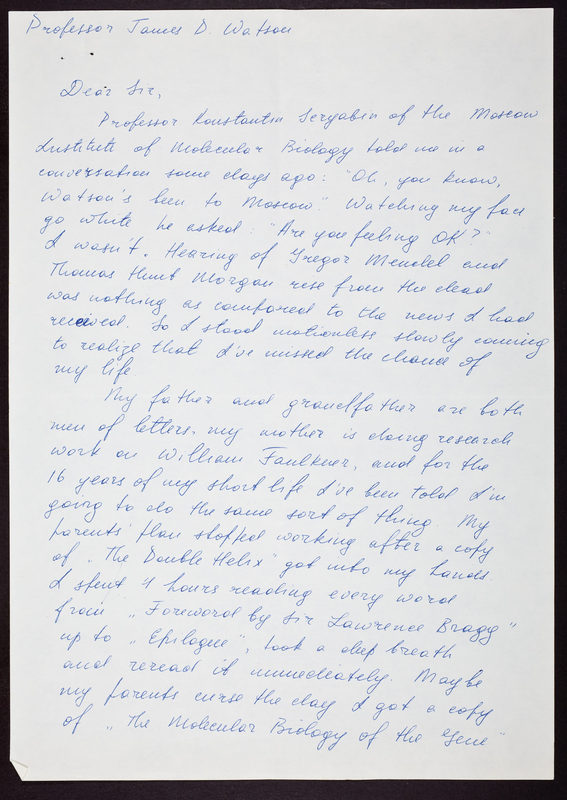 Professor James D. Watson
Dear Sir,
Professor Konstantin Scryabin of the Moscow
Institute of Molecular Biology told me in a
conversation some days ago: "Oh, you know,
Watson's been to Moscow." Watching my face
go white he asked: "Are you feeling OK?"
I wasn't. Hearing of Gregor Mendel and
Thomas Hunt Morgan rise from the dead
was nothing as compared to the news I had
received. So I stood motionless slowly coming
to realize that I've missed the chance of
my life
My father and grandfather are both
men of letters, my mother is doing research
work on William Faulkner, and for the
16 years of my short life I've been told I'm
going to do the same sort of thing. My
parents' plan stopped working after a copy
of „The Double Helix" got into my hands.
I spent 4 hours reading every word
from „Foreword by Sir Lawrence Bragg"
up to „Epilogue", took a deep breath
and reread it immediately. Maybe
my parents curse the day I got a copy
of „The Molecular Biology of the Gene"